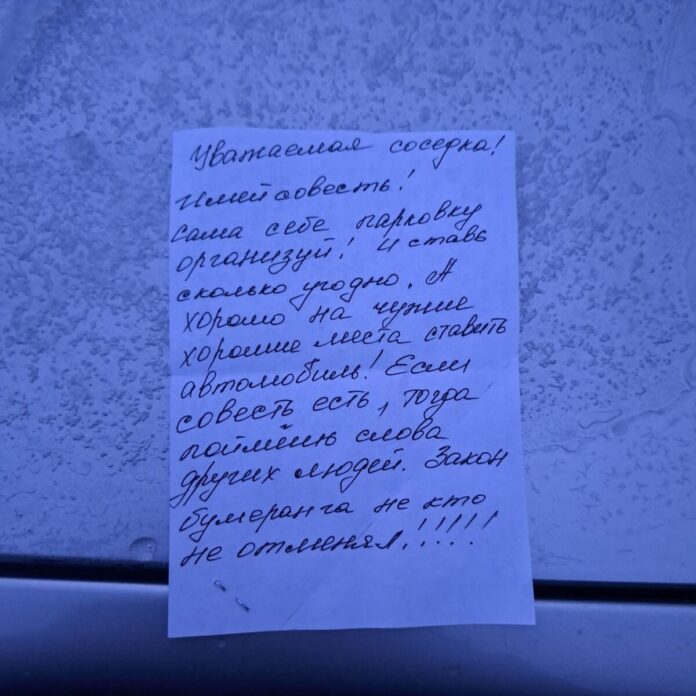 Уважаемая соседка!
Имей совесть!
Сама себе парковку
организуй! И ставь
сколько угодно. А
хорошо на чужие
хорошие места ставить
автомобиль! Если
совесть есть, тогда
поймёшь слова
других людей. Закон
бумеранга не кто
не отменял!!!!!